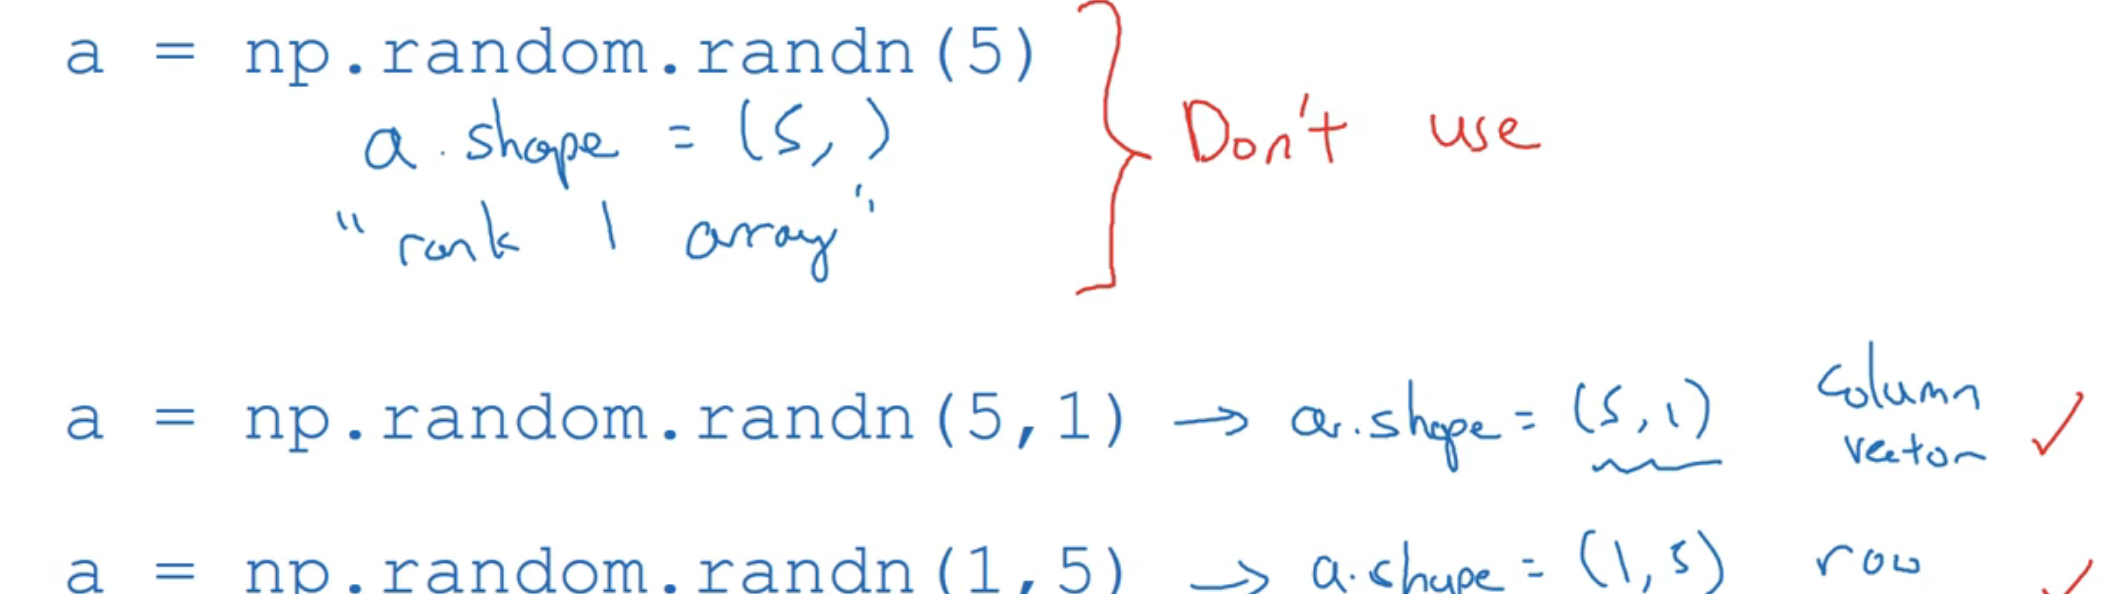 a = np.random.randn(5)
a.shape = (5,)
"rank 1 array"
Don't use
a = np.random.randn(5,1) → a.shape = (5,1) column vector ✓
a = np.random.randn(1,5) → a.shape = (1,5) row ✓